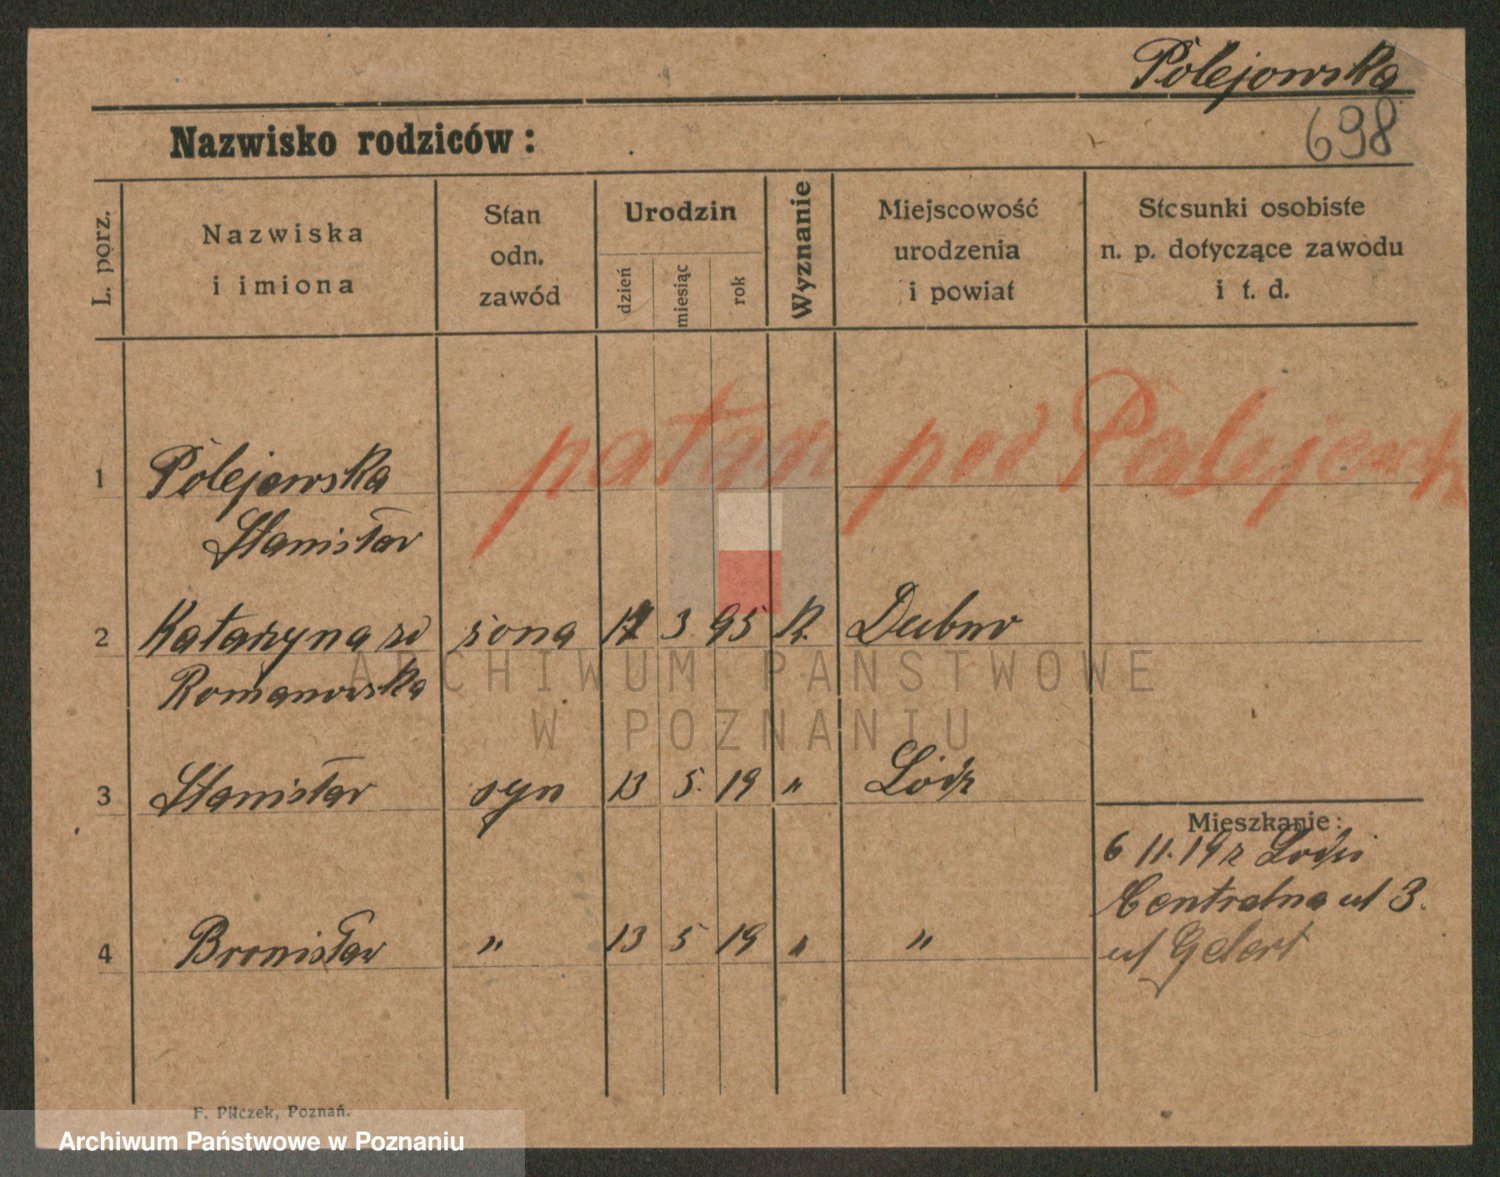 Polejowska
698
Nazwisko rodziców:
L. porz.
Nazwiska
i imiona
Stan
odn.
zawód
Urodzin
dzień
miesiąc
rok
Wyznanie
Miejscowość
urodzenia
i powiat
Stosunki osobiste
n. p. dotyczące zawodu
i t. d.
pod
1 Polejewska
Stanisław
2 Katarzyna żona 3 95 R. Dubno
Romanowska
3 Stanisław syn 13 5. 19 " Łódź
4 Bronisław " 13 5 19 " "
Mieszkanie:
6 11. 19 z Łodzi
Centralna ul 3.
ul
F. Pilczek, Poznań.
ARCHIWUM PAŃSTWOWE
W POZNANIU
Archiwum Państwowe w Poznaniu